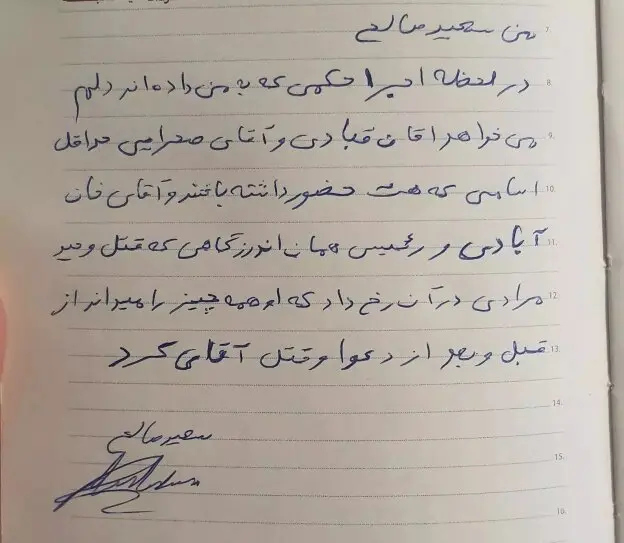 من سعید صالح
در لحظه اجرا حکمی که به من داده‌اند دلم
می‌خواهد اقای قبادی و آقای صحرایی حداقل
اسامی که هست حضور داشته باشند و آقای خان
آبادی و رئیس همان اندرزگاهی که قتل وحید
مرادی در آن رخ داد که او همه چیز را میداند از
قبل و بعد از دعوا و قتل آقای کرد
سعید صالح
7
8
9
10
11
12
13
14
15
16